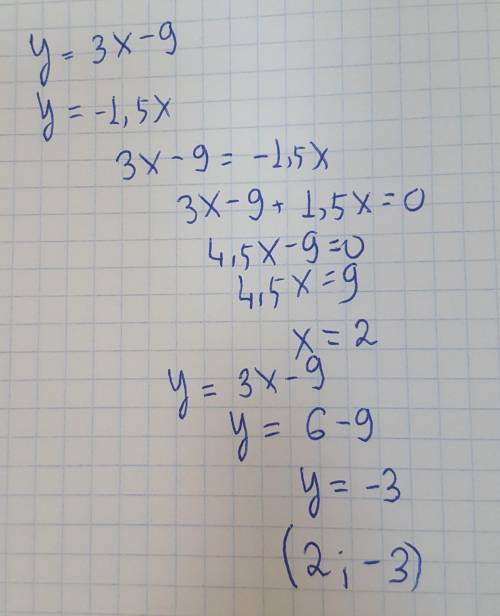 y = 3x - 9
y = -1,5x
3x - 9 = -1,5x
3x - 9 + 1,5x = 0
4,5x - 9 = 0
4,5x = 9
x = 2
y = 3x - 9
y = 6 - 9
y = -3
(2; -3)